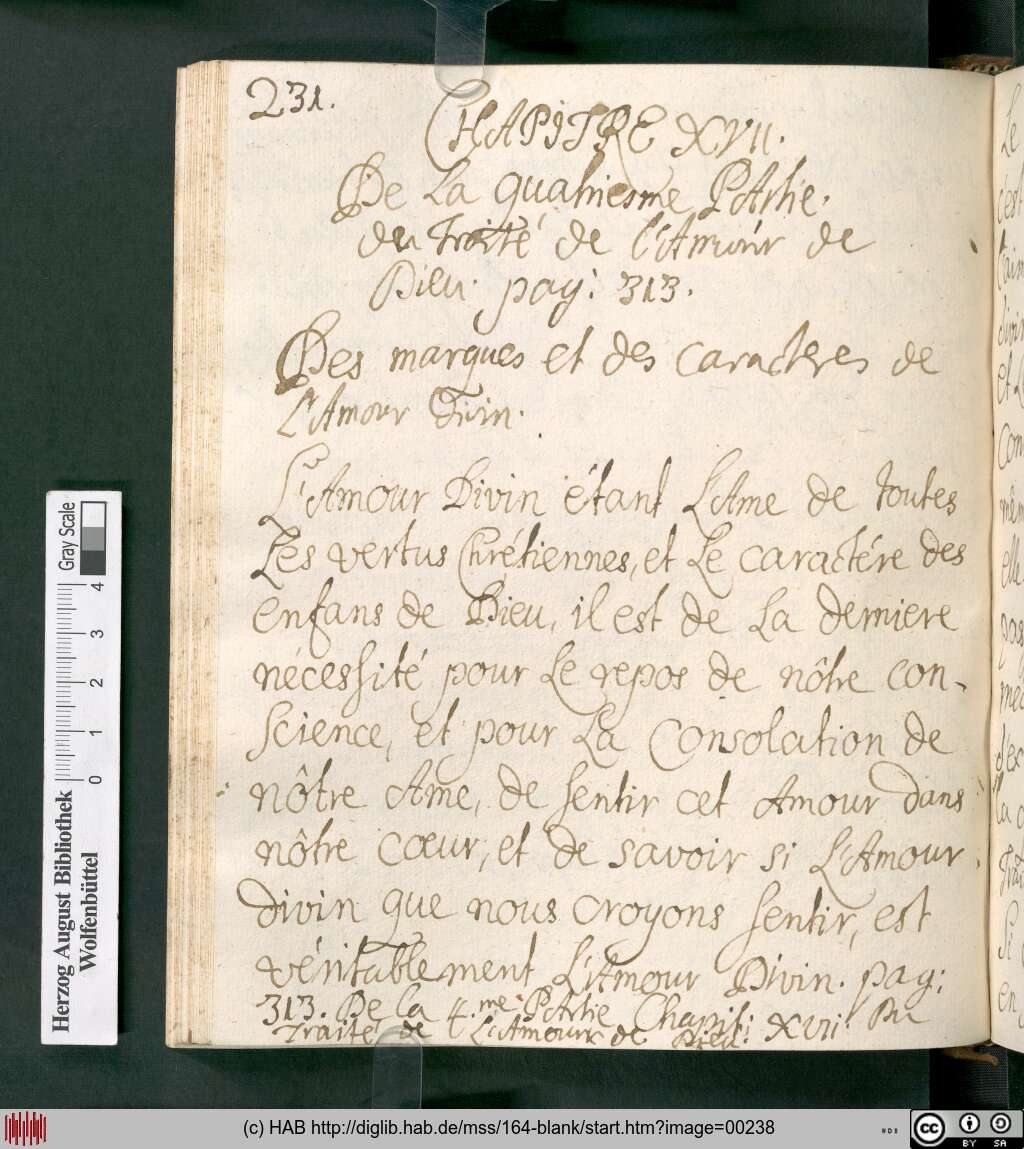 231.
CHAPITRE XVII.
De La quatriesme PArtie.
du Traité de l'Amour de
Dieu. pag: 313.
Des marques et des caracteres de
L'Amour Divin.
L'Amour Divin étant L'Ame de toutes
Les vertus Chrétiennes, et Le caractére des
enfans de Dieu, il est de La derniere
nécessité pour Le repos de nôtre con-
science, et pour La Consolation de
nôtre Ame, de sentir cet Amour dans
nôtre cœur, et de savoir si L'Amour
divin que nous croyons sentir, est
véritablement L'Amour Divin. pag:
313. De la 4.me PArtie Chapit: XVII. Du
Traité de L'Amour de Dieu.
Le
et L
Com
elle
Si
en
Herzog August Bibliothek
Wolfenbüttel
Gray Scale
0 1 2 3 4
(c) HAB http://diglib.hab.de/mss/164-blank/start.htm?image=00238
cc BY SA